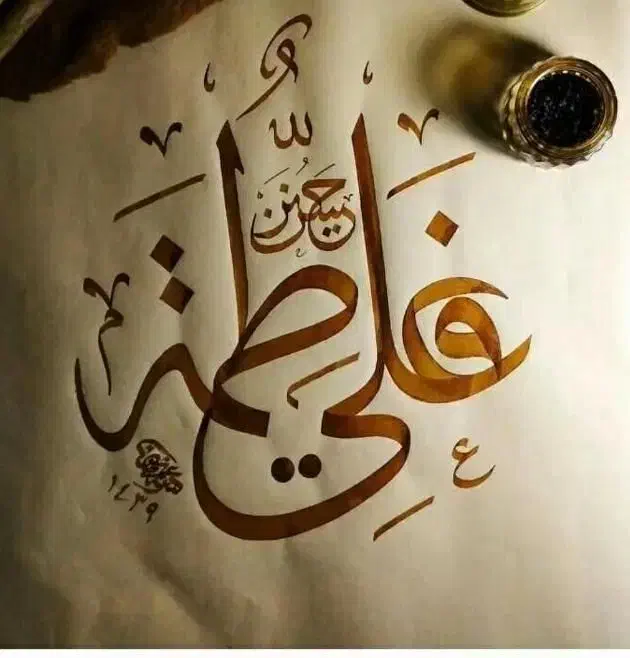 علي فاطمة
حسن حسين
ع
١٤٣٩